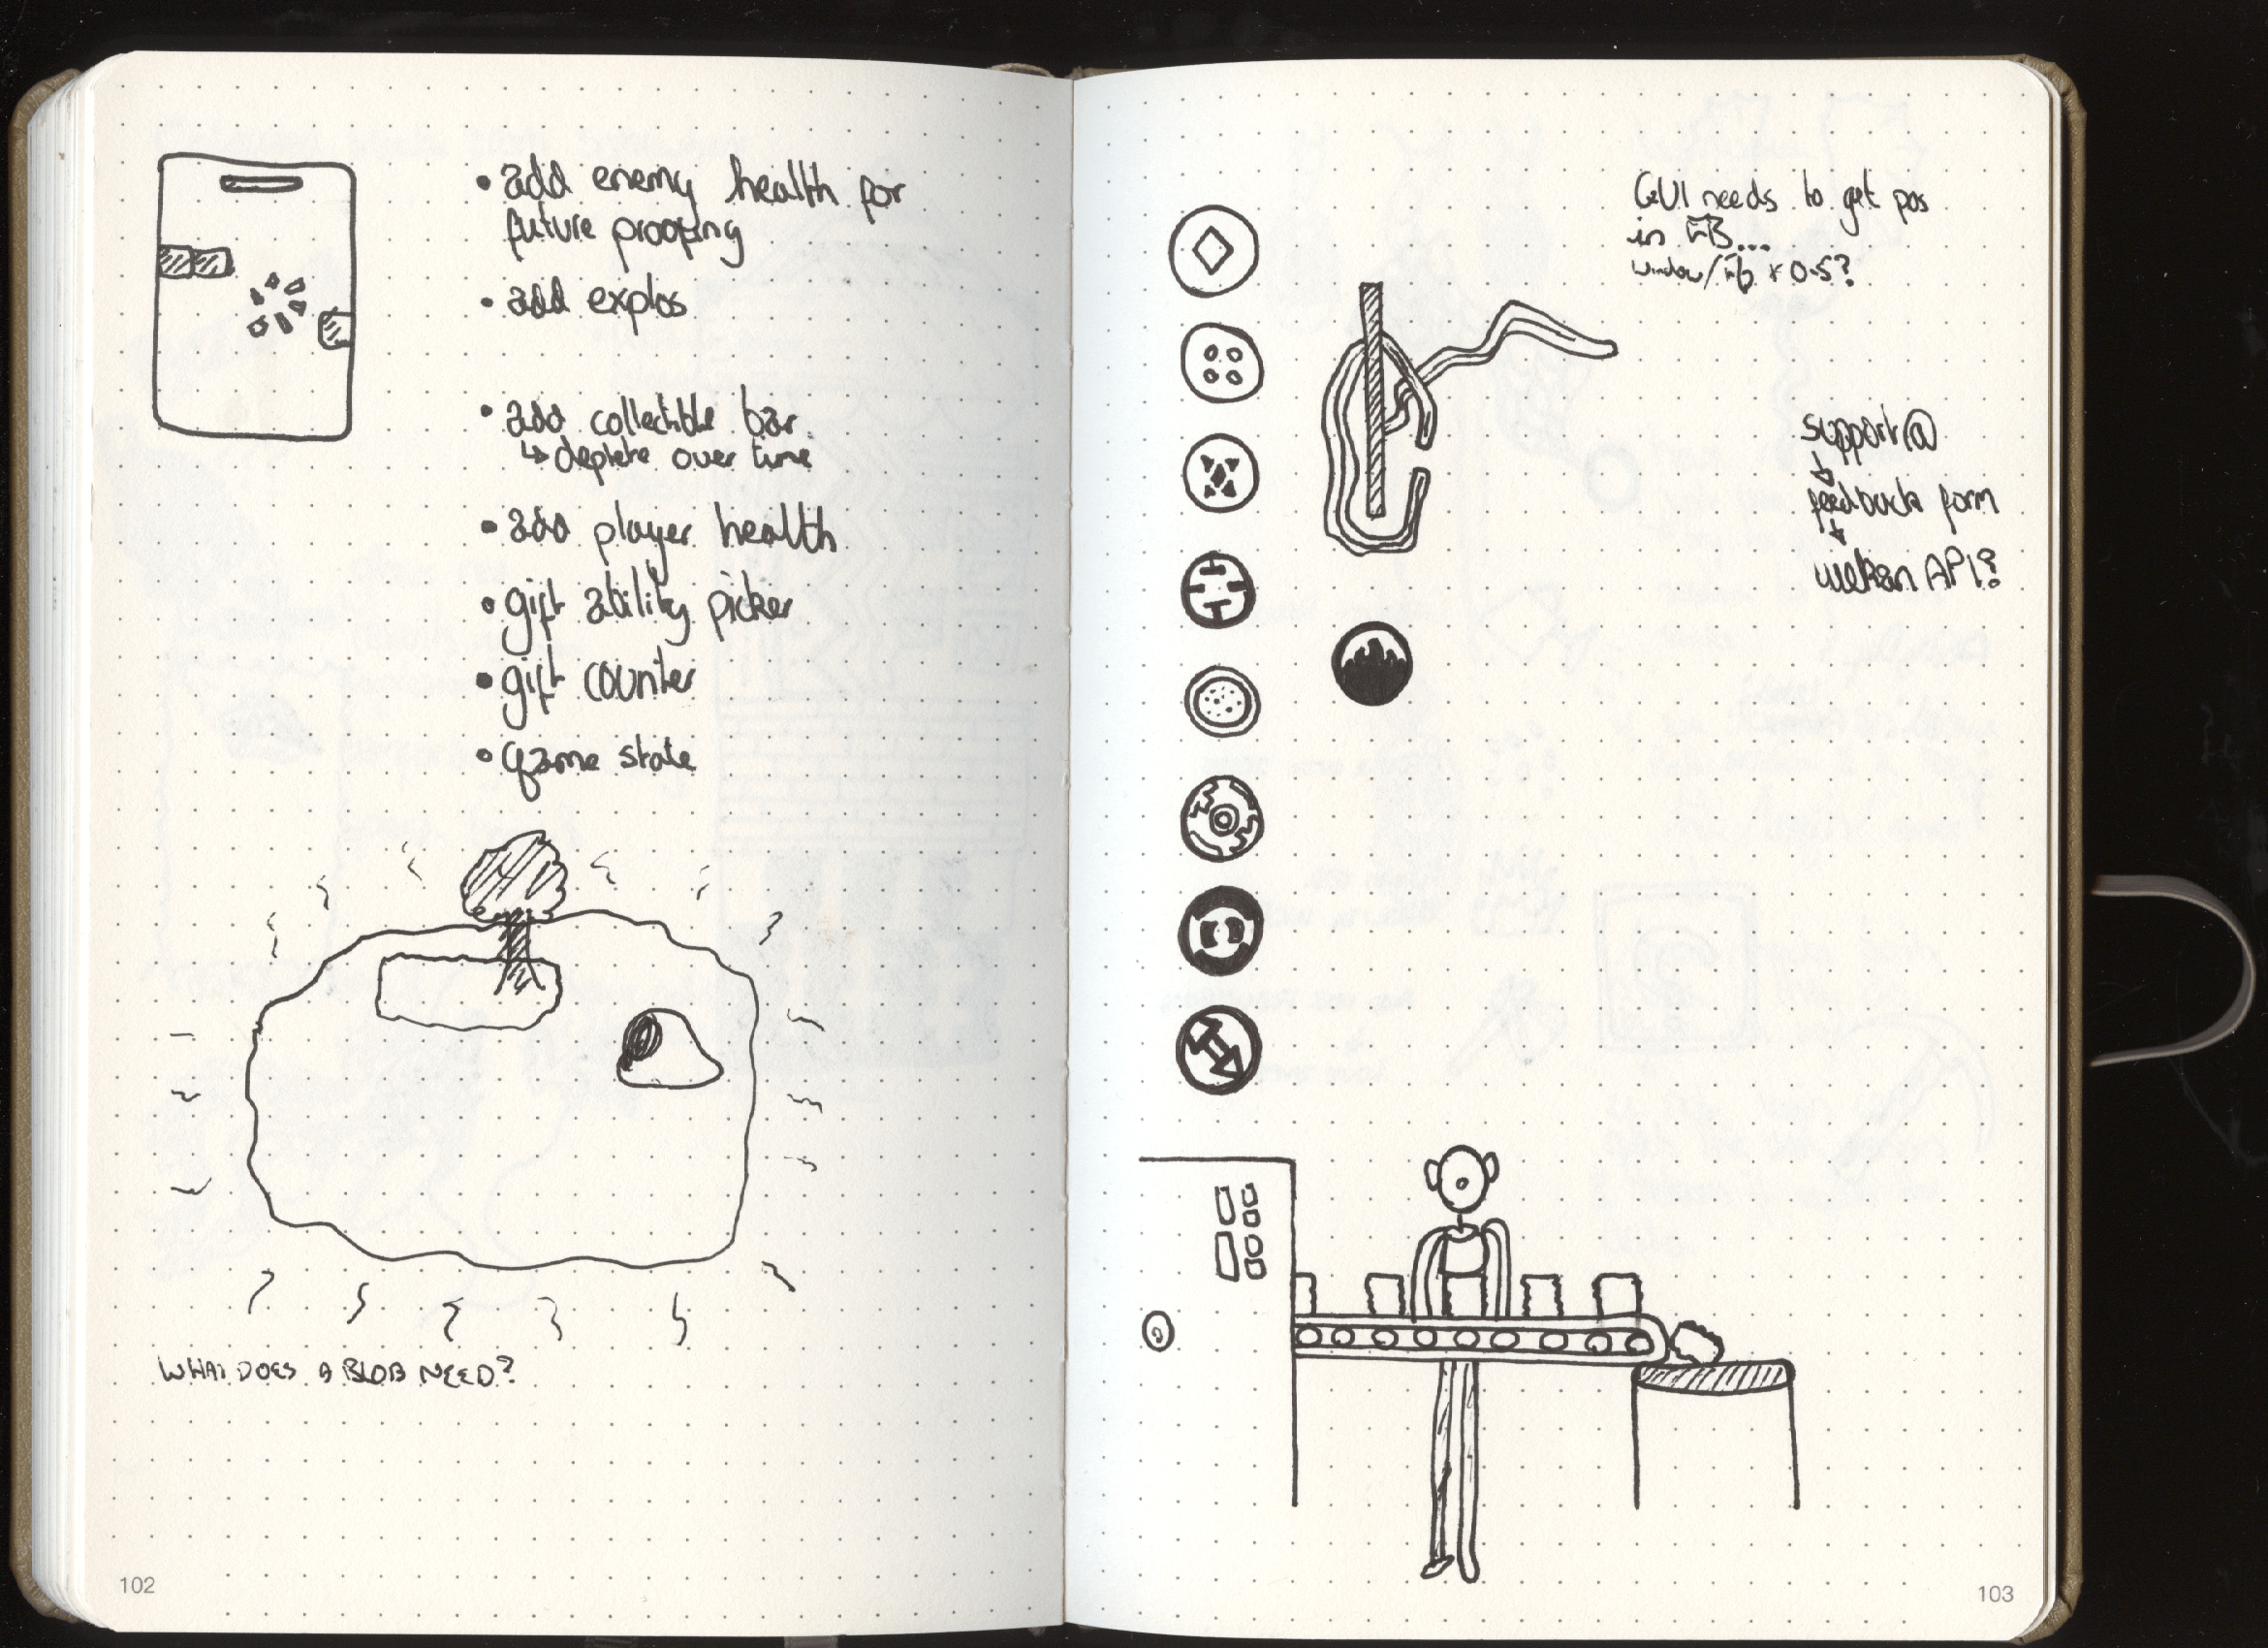 • add enemy health for
future proofing
• add explos
• add collectible bar
↳ deplete over time
• add player health
• gift ability picker
• gift counter
• game state
WHAT DOES A BLOB NEED?
102
GUI needs to get pos
in FB...
window/fb * 0.5?
support@
↓
feedback form
↓
wekan API?
103